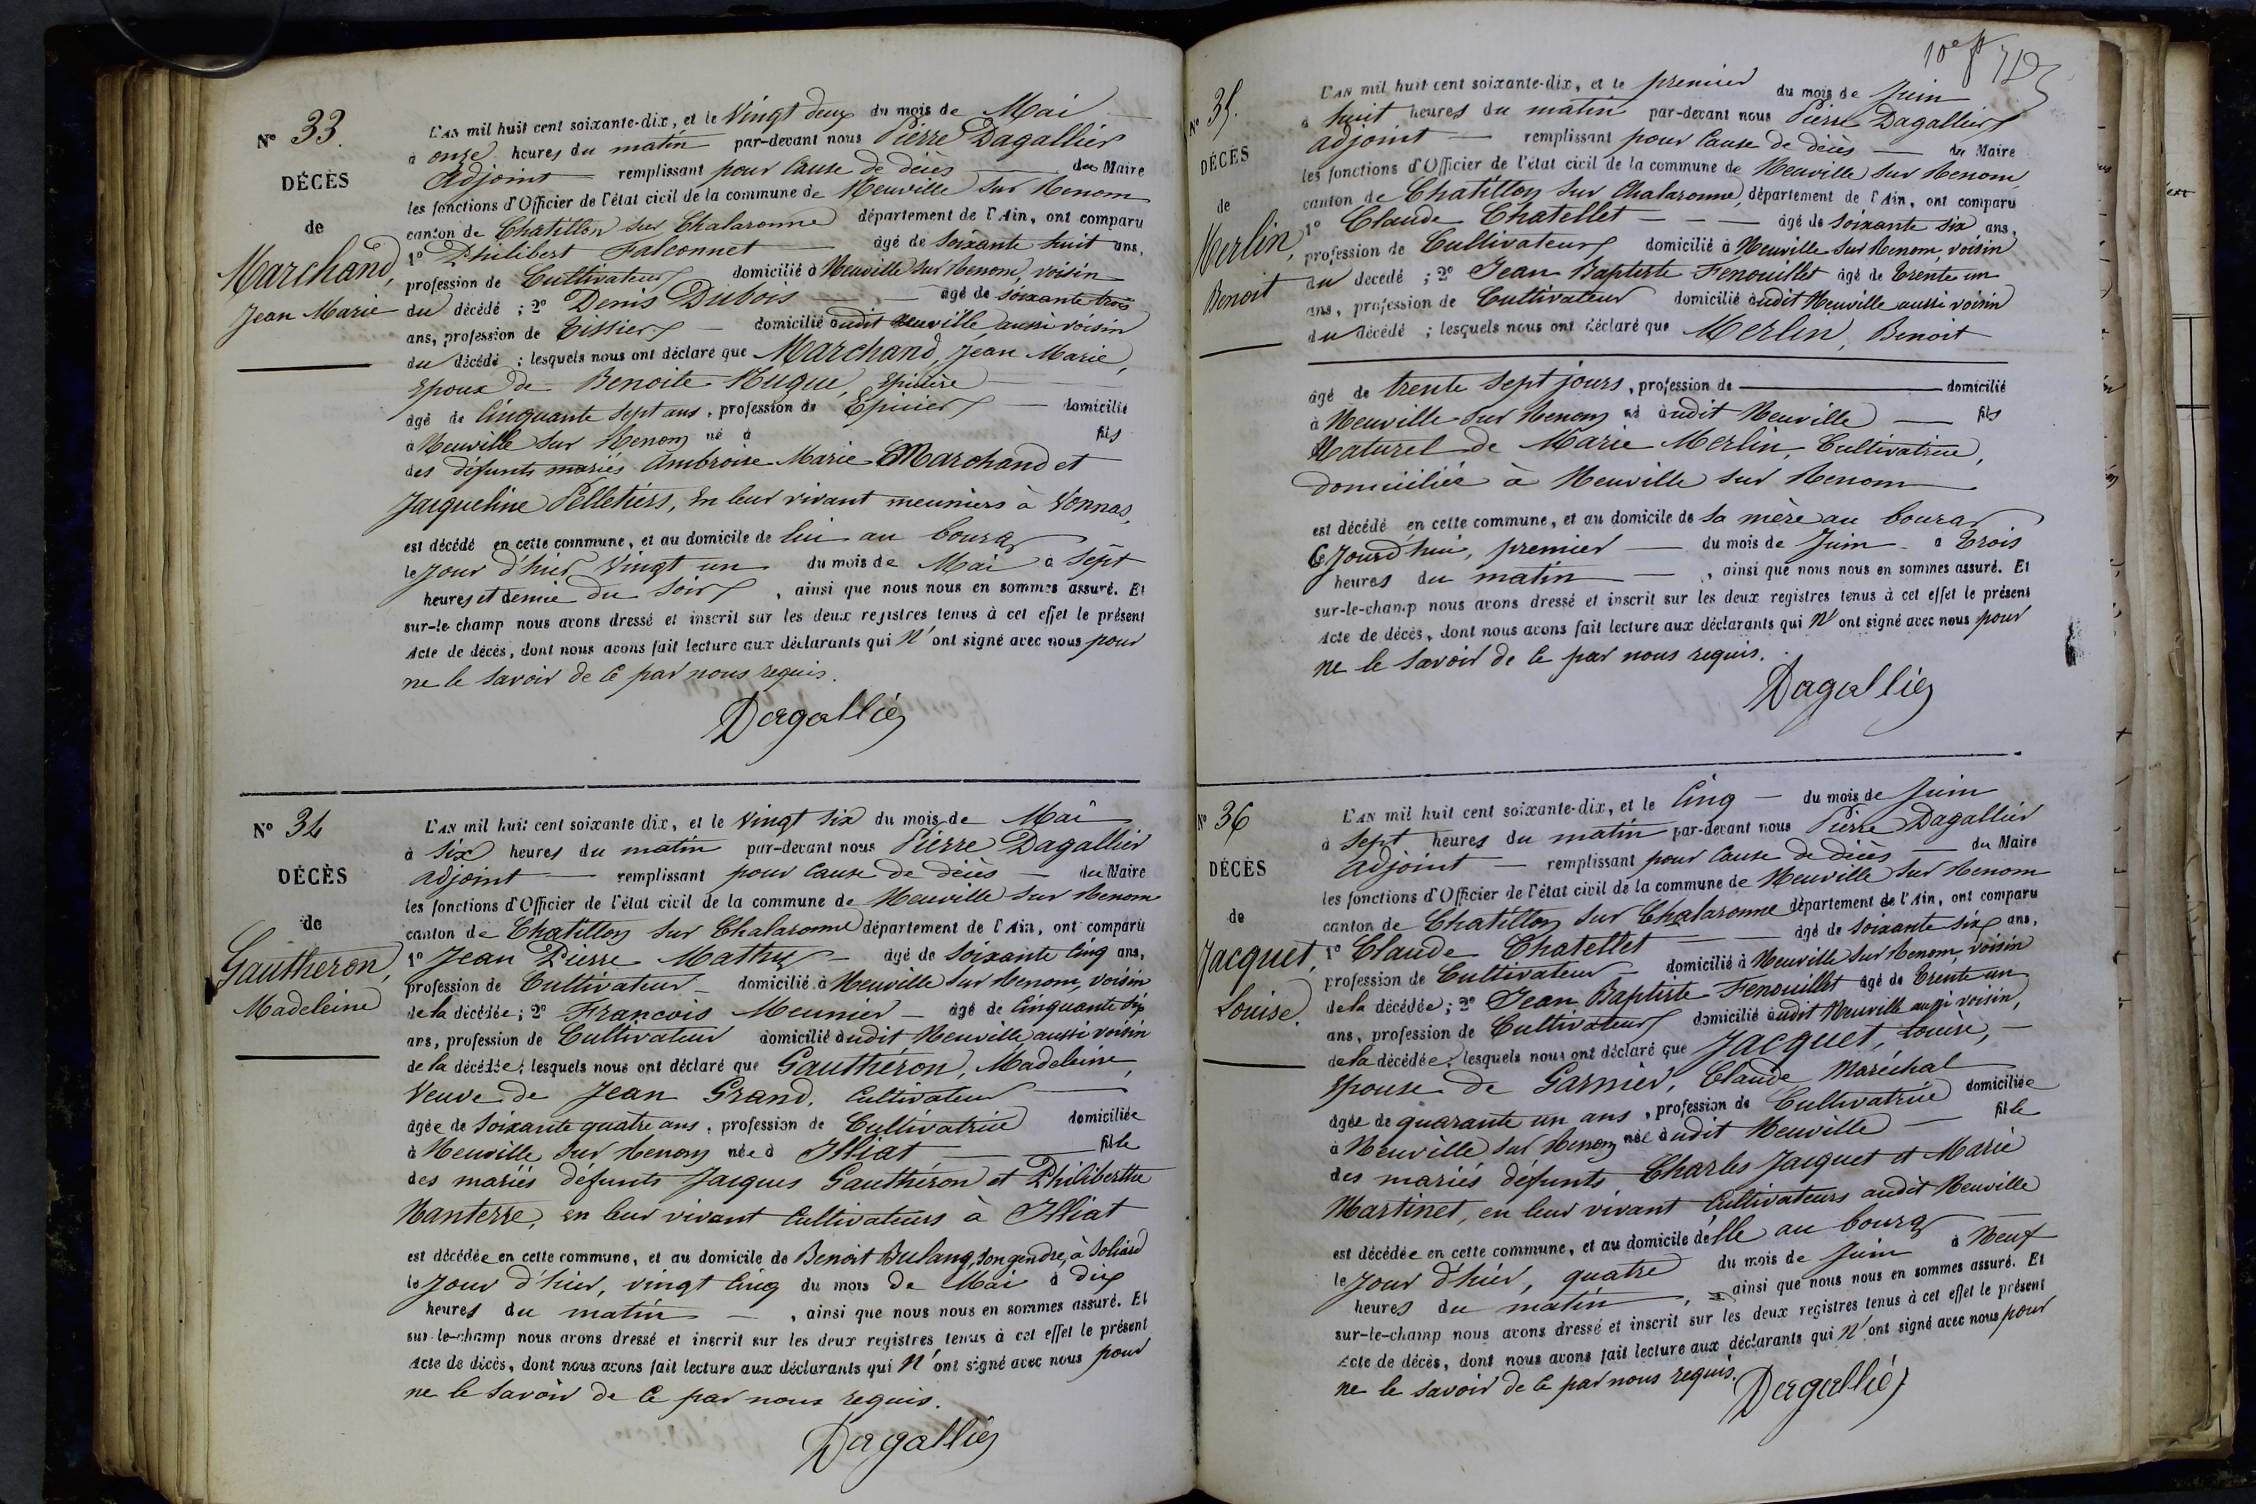 N° 33.
DÉCÈS
de
Marchand,
Jean Marie
L'AN mil huit cent soixante-dix, et le Vingt deux du mois de Mai
à onze heures du matin par-devant nous Pierre Dagallier
Adjoint remplissant pour Cause de décès du Maire
les fonctions d'Officier de l'état civil de la commune de Neuville sur Renom
canton de Chatillon sur Chalaronne département de l'Ain, ont comparu
1° Philibert Falconnet âgé de soixante huit ans,
profession de Cultivateur domicilié à Neuville sur Renom, voisin
du décédé ; 2° Denis Dubois âgé de soixante trois
ans, profession de Tissier domicilié audit Neuville aussi voisin
du décédé ; lesquels nous ont déclaré que Marchand, Jean Marie,
Epoux de Benoite Hugue, Epicière
âgé de Cinquante sept ans, profession de Epicier domicilié
à Neuville sur Renom né à fils
des défunts mariés Ambroise Marie Marchand et
Jacqueline Pelletiers, en leur vivant meuniers à Vonnas,
est décédé en cette commune, et au domicile de lui au bourg
le Jour d'hier Vingt un du mois de Mai à Sept
heures et demie du Soir, ainsi que nous nous en sommes assuré. Et
sur-le-champ nous avons dressé et inscrit sur les deux registres tenus à cet effet le présent
Acte de décès, dont nous avons fait lecture aux déclarants qui N'ont signé avec nous pour
ne le savoir de ce par nous requis.
Dagallier
N° 34
DÉCÈS
de
Gautheron,
Madeleine
L'AN mil huit cent soixante-dix, et le Vingt six du mois de Mai
à Six heures du matin par-devant nous Pierre Dagallier
adjoint remplissant pour Cause de décès du Maire
les fonctions d'Officier de l'état civil de la commune de Neuville sur Renom
canton de Chatillon sur Chalaronne département de l'Ain, ont comparu
1° Jean Pierre Mathy âgé de soixante Cinq ans,
profession de Cultivateur domicilié à Neuville sur Renom, voisin
de la décédée ; 2° Francois Meunier âgé de Cinquante six
ans, profession de Cultivateur domicilié audit Neuville aussi voisin
de la décédée ; lesquels nous ont déclaré que Gauthéron, Madeleine,
Veuve de Jean Grand, Cultivateur
âgée de Soixante quatre ans, profession de Cultivatrice domiciliée
à Neuville sur Renom née à Illiat fille
des mariés défunts Jacques Gauthéron et Philiberthe
Nanterre, en leur vivant Cultivateurs à Illiat
est décédée en cette commune, et au domicile de Benoit Bulang, son gendre, à Soliard
le Jour d'hier, vingt Cinq du mois de Mai à dix
heures du matin, ainsi que nous nous en sommes assuré. Et
sur-le-champ nous avons dressé et inscrit sur les deux registres tenus à cet effet le présent
Acte de décès, dont nous avons fait lecture aux déclarants qui N'ont signé avec nous pour
ne le savoir de ce par nous requis.
Dagallier
10e
N° 35.
DÉCÈS
de
Merlin,
Benoit
L'AN mil huit cent soixante-dix, et le premier du mois de Juin
à huit heures du matin par-devant nous Pierre Dagallier
adjoint remplissant pour Cause de décès du Maire
les fonctions d'Officier de l'état civil de la commune de Neuville sur Renom,
canton de Chatillon sur Chalaronne, département de l'Ain, ont comparu
1° Claude Chatellet âgé de soixante six ans,
profession de Cultivateur domicilié à Neuville sur Renom, voisin
du décédé ; 2° Jean Baptiste Fenouillet âgé de Trente un
ans, profession de Cultivateur domicilié audit Neuville aussi voisin
du décédé ; lesquels nous ont déclaré que Merlin, Benoit
âgé de trente sept jours, profession de domicilié
à Neuville sur Renom né audit Neuville fils
Naturel de Marie Merlin, Cultivatrice,
domiciliée à Neuville sur Renom
est décédé en cette commune, et au domicile de sa mère au bourg
Ce Jourd'hui, premier du mois de Juin à Trois
heures du matin, ainsi que nous nous en sommes assuré. Et
sur-le-champ nous avons dressé et inscrit sur les deux registres tenus à cet effet le présent
Acte de décès, dont nous avons fait lecture aux déclarants qui N'ont signé avec nous pour
ne le savoir de ce par nous requis.
Dagallier
N° 36
DÉCÈS
de
Jacquet,
Louise.
L'AN mil huit cent soixante-dix, et le Cinq du mois de Juin
à Sept heures du matin par-devant nous Pierre Dagallier
adjoint remplissant pour Cause de décès du Maire
les fonctions d'Officier de l'état civil de la commune de Neuville sur Renom
canton de Chatillon sur Chalaronne département de l'Ain, ont comparu
1° Claude Chatellet âgé de soixante six ans,
profession de Cultivateur domicilié à Neuville sur Renom, voisin
de la décédée ; 2° Jean Baptiste Fenouillet âgé de Trente un
ans, profession de Cultivateur domicilié audit Neuville aussi voisin,
de la décédée ; lesquels nous ont déclaré que Jacquet, Louise,
Epouse de Garnier, Claude, Maréchal
âgée de quarante un ans, profession de Cultivatrice domiciliée
à Neuville sur Renom née audit Neuville fille
des mariés défunts Charles Jacquet et Marie
Martinet, en leur vivant Cultivateurs audit Neuville
est décédée en cette commune, et au domicile d'elle au bourg
le Jour d'hier, quatre du mois de Juin à Neuf
heures du matin, ainsi que nous nous en sommes assuré. Et
sur-le-champ nous avons dressé et inscrit sur les deux registres tenus à cet effet le présent
Acte de décès, dont nous avons fait lecture aux déclarants qui N'ont signé avec nous pour
ne le savoir de ce par nous requis.
Dagallier